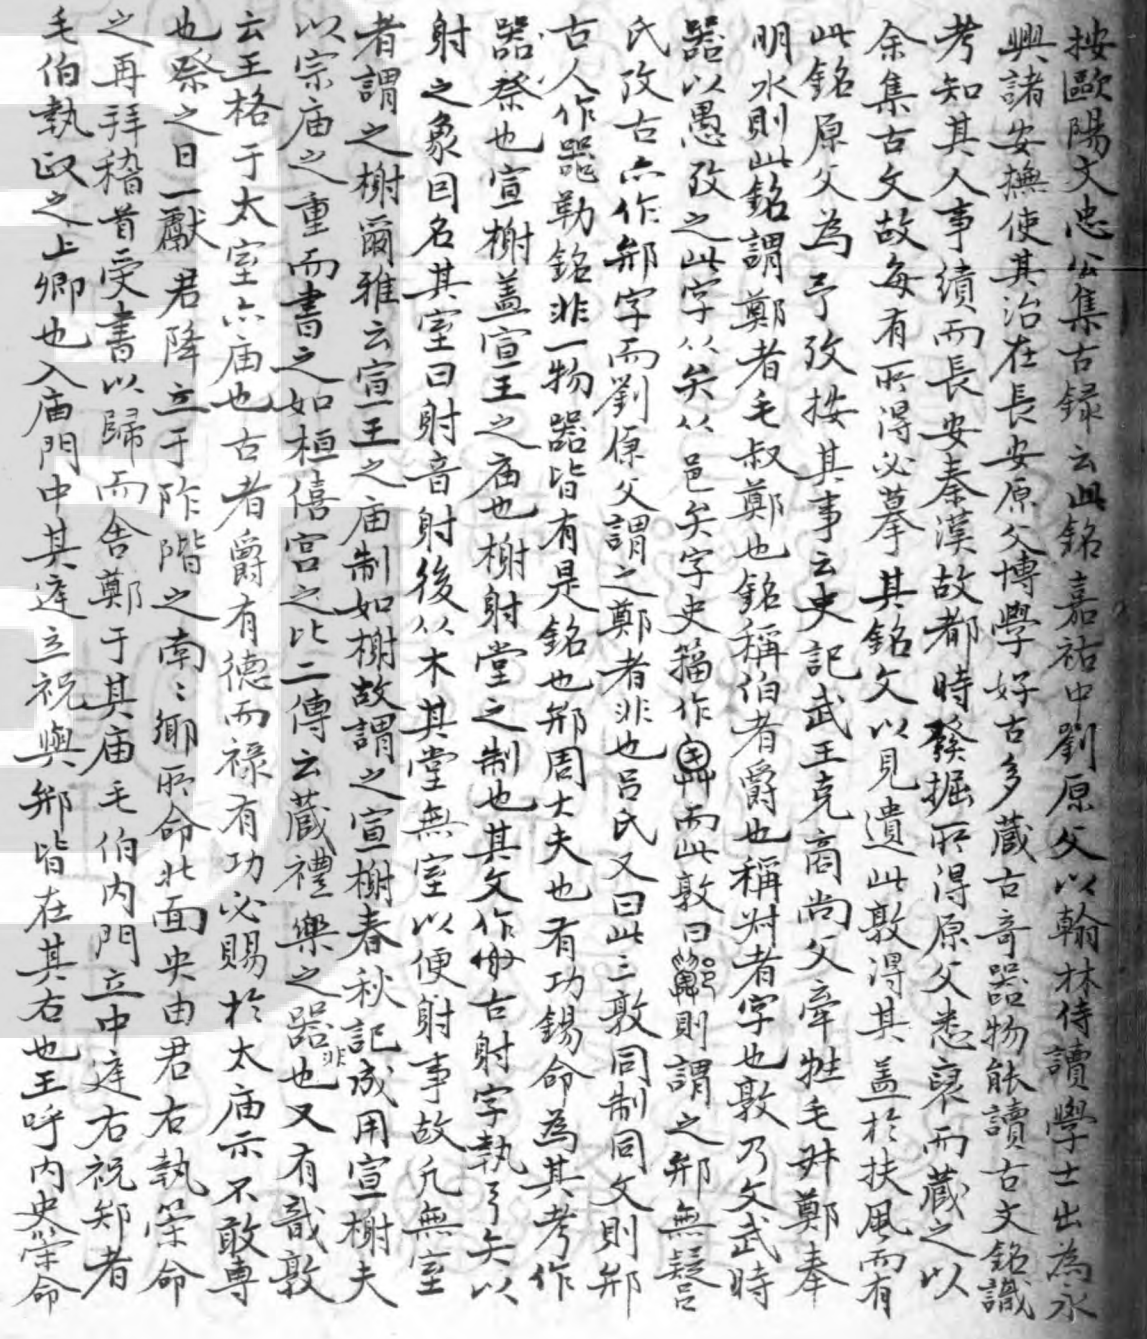 按歐陽文忠公集古録云此銘嘉祐中劉原父以翰林侍讀學士出為永
興諸安撫使其治在長安原父博學好古多藏古奇器物能讀古文銘識
考知其人事績而長安秦漢故都時發掘所得原父悉裒而藏之以
余集古文故每有所得必摹其銘文以見遺此敦得其盖於扶風而有
此銘原父為予攷按其事云史記武王克商尚父牽牲毛叔鄭奉
明水則此銘謂鄭者毛叔鄭也銘稱伯者爵也稱尗者字也敦乃文武時
器以愚攷之此字从矣从邑矣字史籀作而此敦曰則謂之䢵無疑吕
氏攷古亦作䢵字而劉原父謂之鄭者非也吕氏又曰此三敦同制同文則䢵
古人作器勒銘非一物器皆有是銘也䢵周大夫也有功錫命為其考作
器祭也宣榭盖宣王之庙也榭射堂之制也其文作古射字執弓矢以
射之象因名其室曰射音射後从木其堂無室以便射事故凡無室
者謂之榭爾雅云宣王之庙制如榭故謂之宣榭春秋記成周宣榭夫
以宗庙之重而書之如桓僖宫之比二傳云藏禮樂之器非也又有敦
云王格于太室亦庙也古者爵有德而禄有功必賜於太庙示不敢專
也祭之日一獻君降立于阼階之南〻鄉所命北面史由君右執策命
之再拜稽首受書以歸而舍鄭于其庙毛伯内門立中廷右祝郑者
毛伯執政之上卿也入庙門中其廷立祝與䢵皆在其右也王呼内史策命